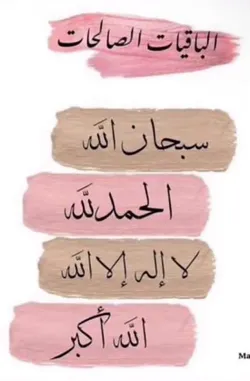 الباقيات الصالحات
سبحان الله
الحمدلله
لا إله إلا الله
الله أكبر
Ma